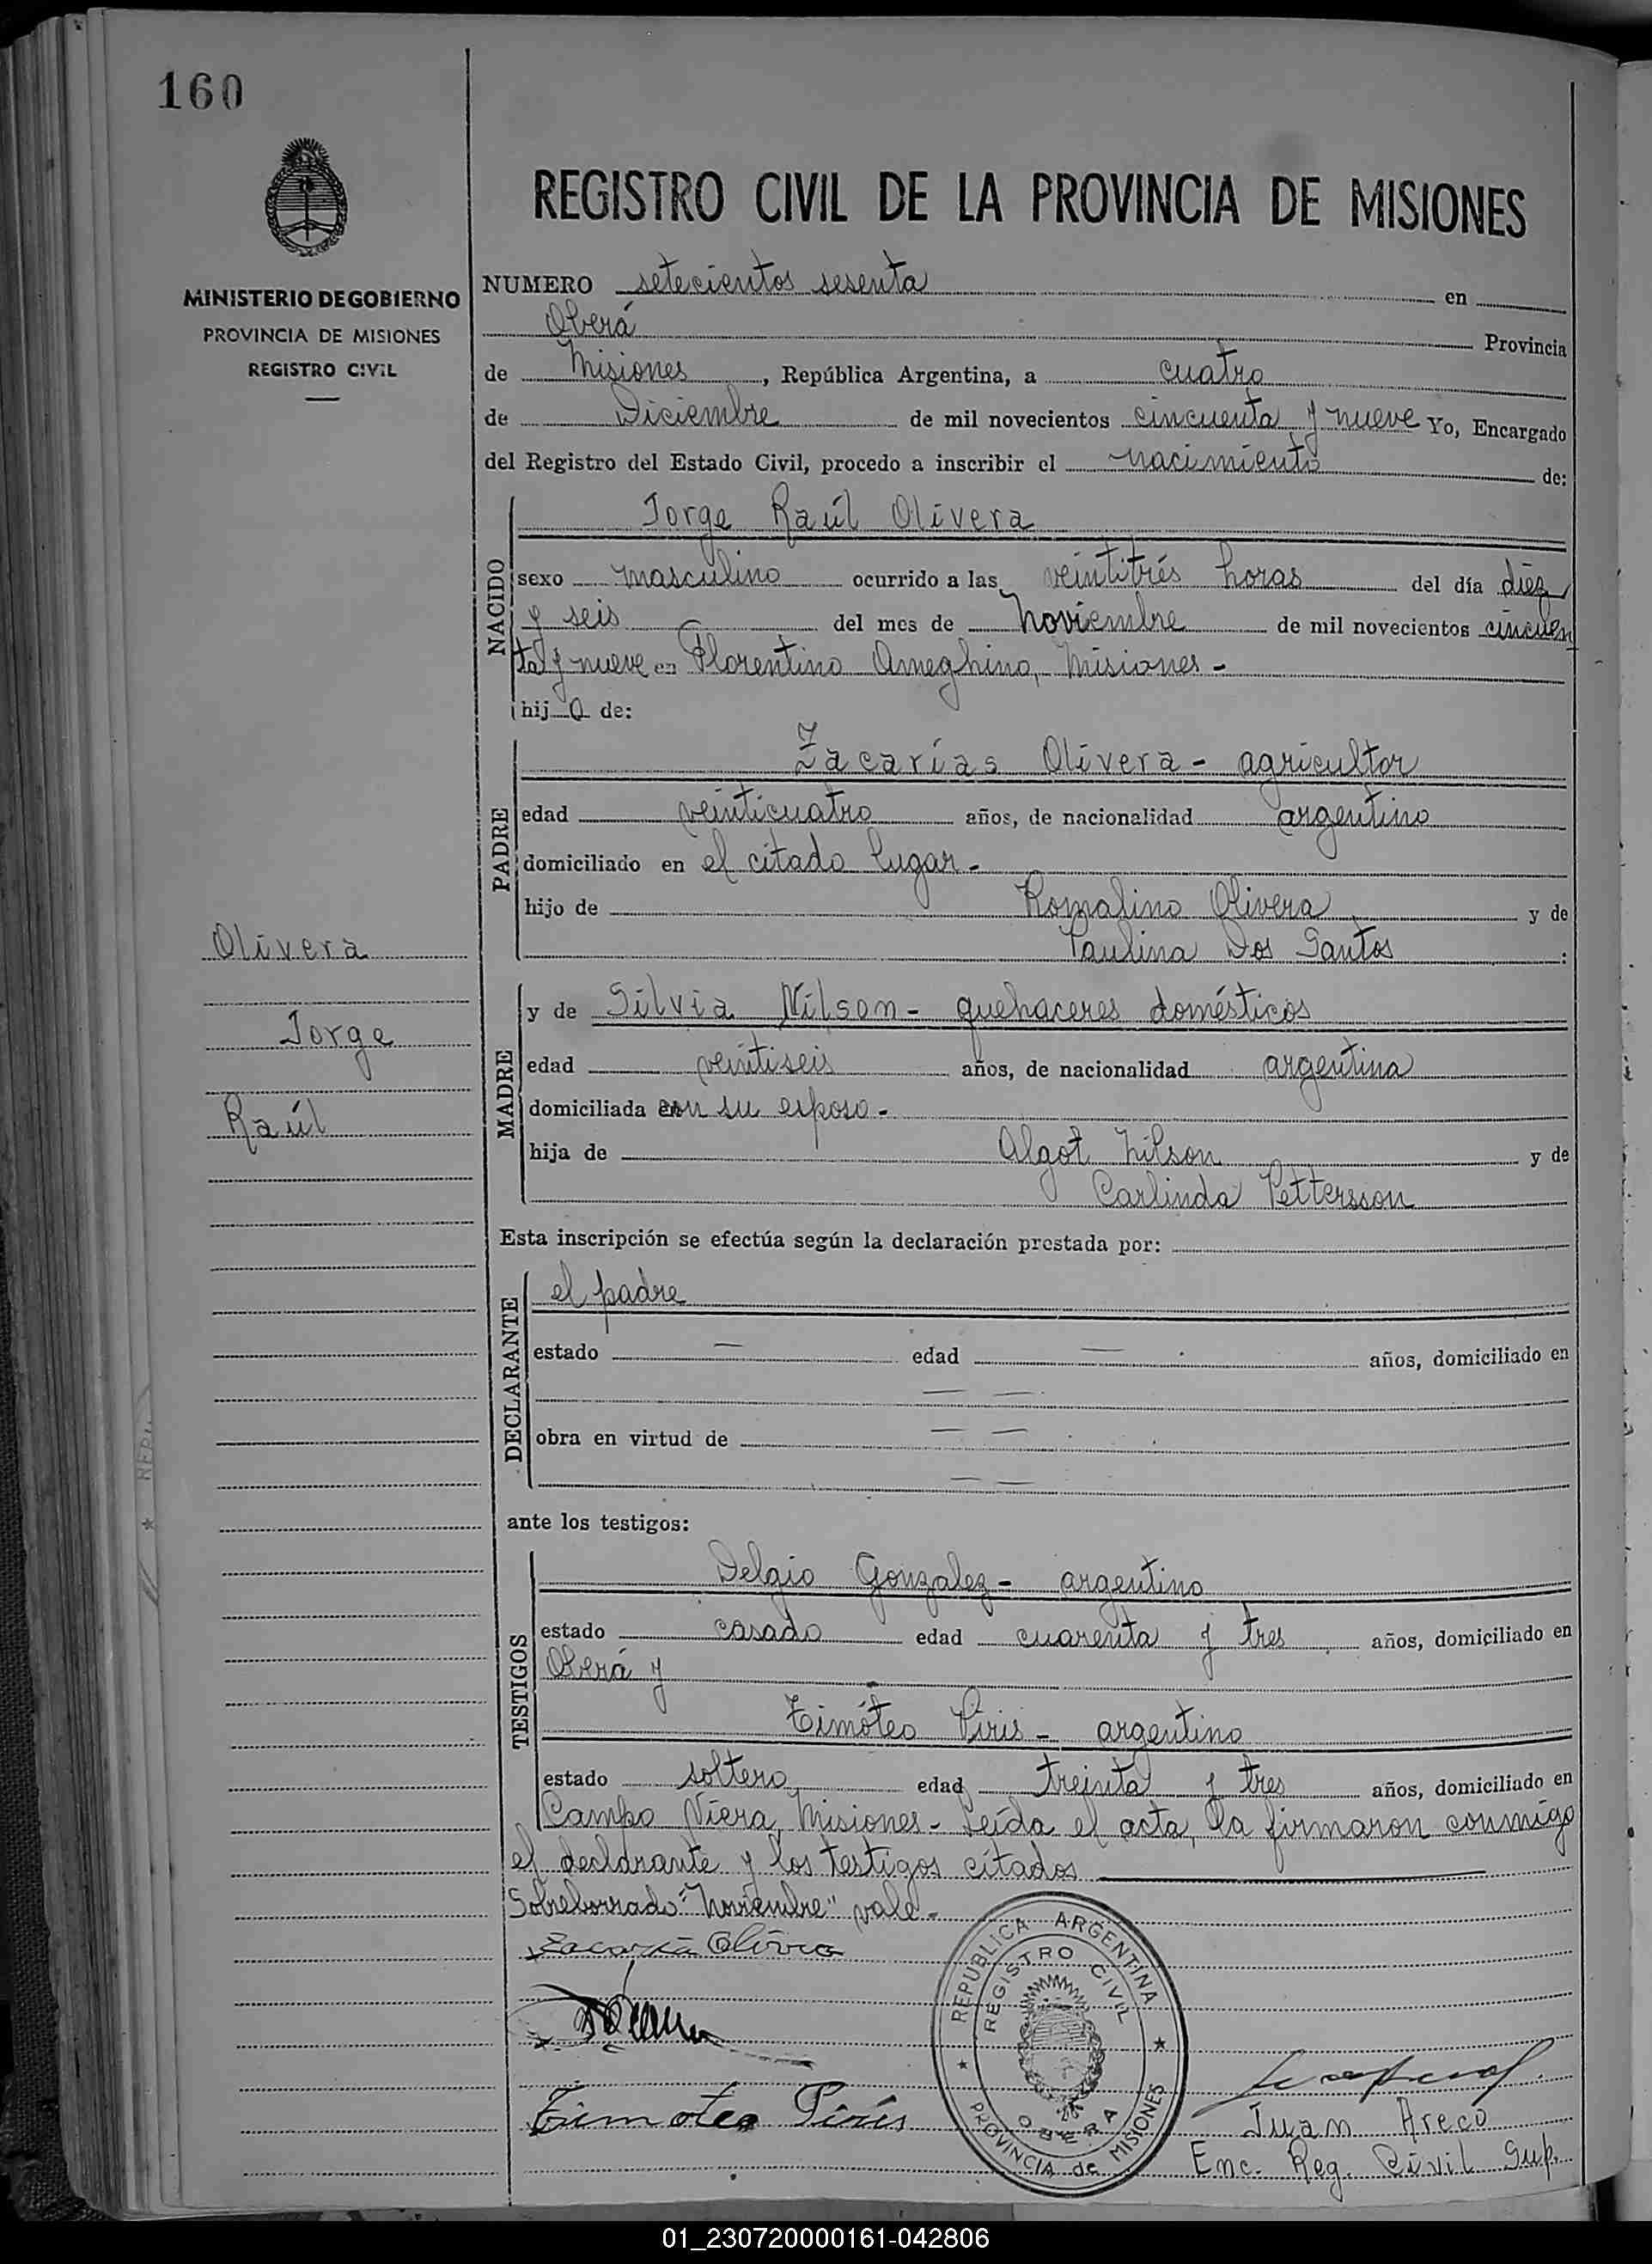 160
MINISTERIO DE GOBIERNO
PROVINCIA DE MISIONES
REGISTRO CIVIL
REGISTRO CIVIL DE LA PROVINCIA DE MISIONES
NUMERO setecientos sesenta en
Oberá Provincia
de Misiones, República Argentina, a cuatro
de Diciembre de mil novecientos cincuenta y nueve Yo, Encargado
del Registro del Estado Civil, procedo a inscribir el nacimiento de:
NACIDO
Jorge Raúl Olivera
sexo masculino ocurrido a las veintitrés horas del día diez
y seis del mes de Noviembre de mil novecientos cincuen
ta y nueve en Florentino Ameghino, Misiones -
hijo de:
PADRE
Zacarías Olivera - agricultor
edad veinticuatro años, de nacionalidad argentino
domiciliado en el citado lugar -
hijo de Romalino Olivera y de
Paulina Dos Santos :
MADRE
y de Silvia Nilson - quehaceres domésticos
edad veintiseis años, de nacionalidad argentina
domiciliada con su esposo -
hija de Algot Nilson y de
Carlinda Pettersson
Olivera
Jorge
Raúl
Esta inscripción se efectúa según la declaración prestada por:
DECLARANTE
el padre
estado — edad — años, domiciliado en
— —
obra en virtud de — —
— —
ante los testigos:
TESTIGOS
Delgio Gonzalez - argentino
estado casado edad cuarenta y tres años, domiciliado en
Oberá y
Timóteo Piris - argentino
estado soltero edad treinta y tres años, domiciliado en
Campo Viera, Misiones - Leída el acta, la firmaron conmigo
el declarante y los testigos citados
Sobreborrado "Noviembre" vale -
Zacaria Olivera
Timoteo Piris
REPUBLICA ARGENTINA
REGISTRO CIVIL
OBERA
PROVINCIA de MISIONES
Juan Areco
Enc. Reg. Civil Sup.
01_230720000161-042806